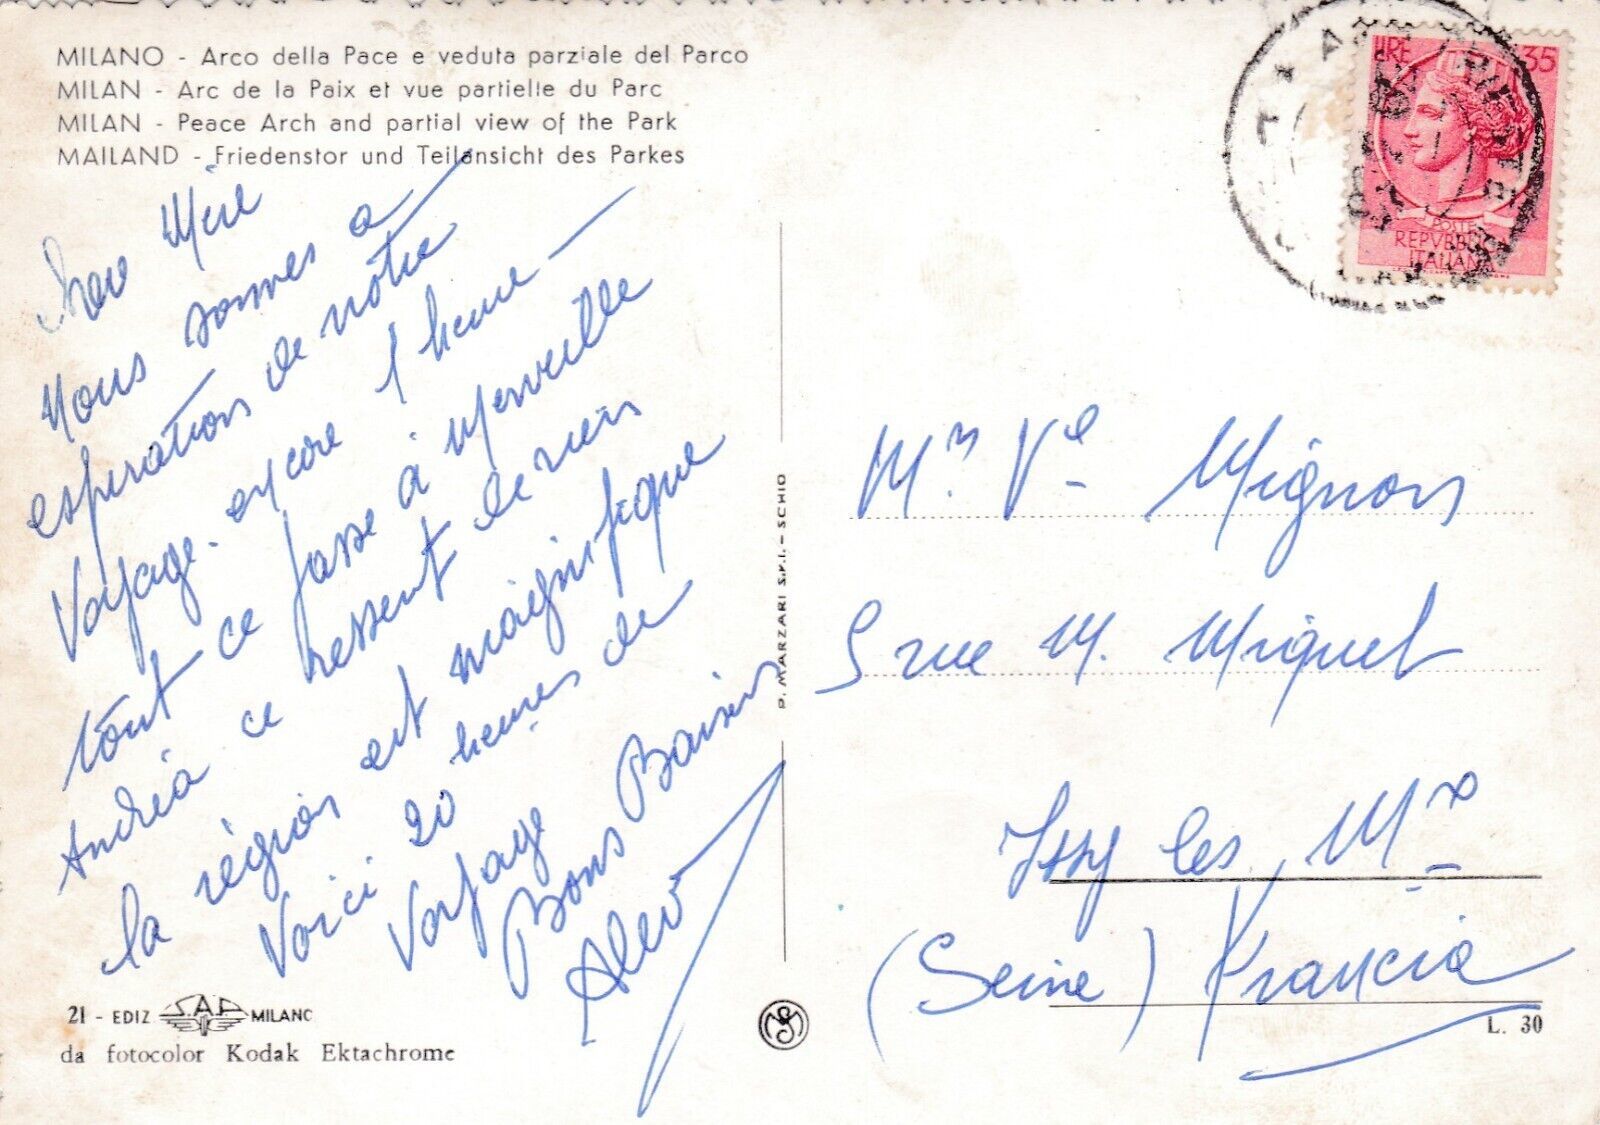 MILANO - Arco della Pace e veduta parziale del Parco
MILAN - Arc de la Paix et vue partielle du Parc
MILAN - Peace Arch and partial view of the Park
MAILAND - Friedenstor und Teilansicht des Parkes
LIRE 35
POSTE
REPVBBLICA
ITALIANA
Nous sommes a
esperation de notre
Voyage - encore 1 heure -
tout ce passe à merveille
Andréa ce ressent de rien
la région est maignifique
Voici 20 heures de
Voyage
Bons Baisers
P. MARZARI S.P.I. - SCHIO
Mm Ve Mignon
5 rue M. Miquel
Issy les Mx
(Seine) Francia
21 - EDIZ S.A.F MILANO
da fotocolor Kodak Ektachrome
L. 30